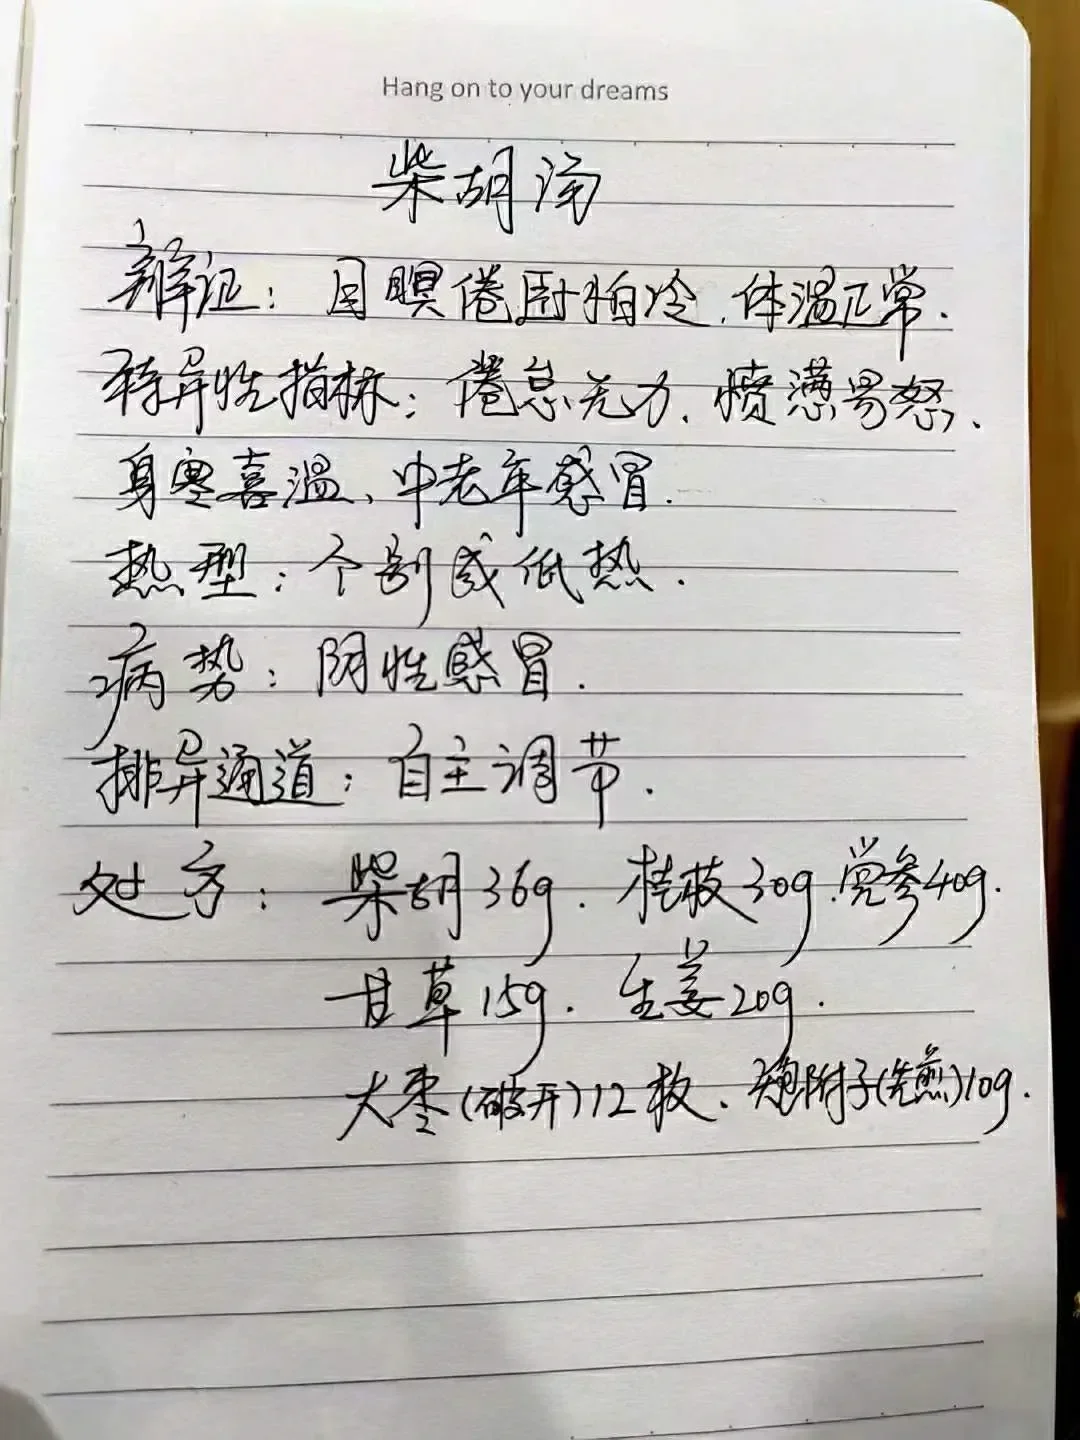 Hang on to your dreams
柴胡汤
辩证：目瞑倦卧怕冷，体温正常．
特异性指标：倦怠无力、愤懑易怒、
身寒喜温、中老年感冒．
热型：个别或低热．
病势：阴性感冒．
排异通道：自主调节．
处方：柴胡36g．桂枝30g．党参40g．
甘草15g．生姜20g．
大枣(破开)12枚．炮附子(先煎)10g．